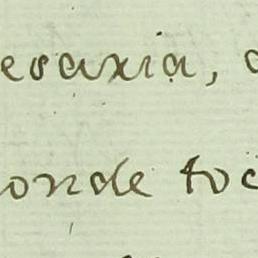 esaxia,
onde to